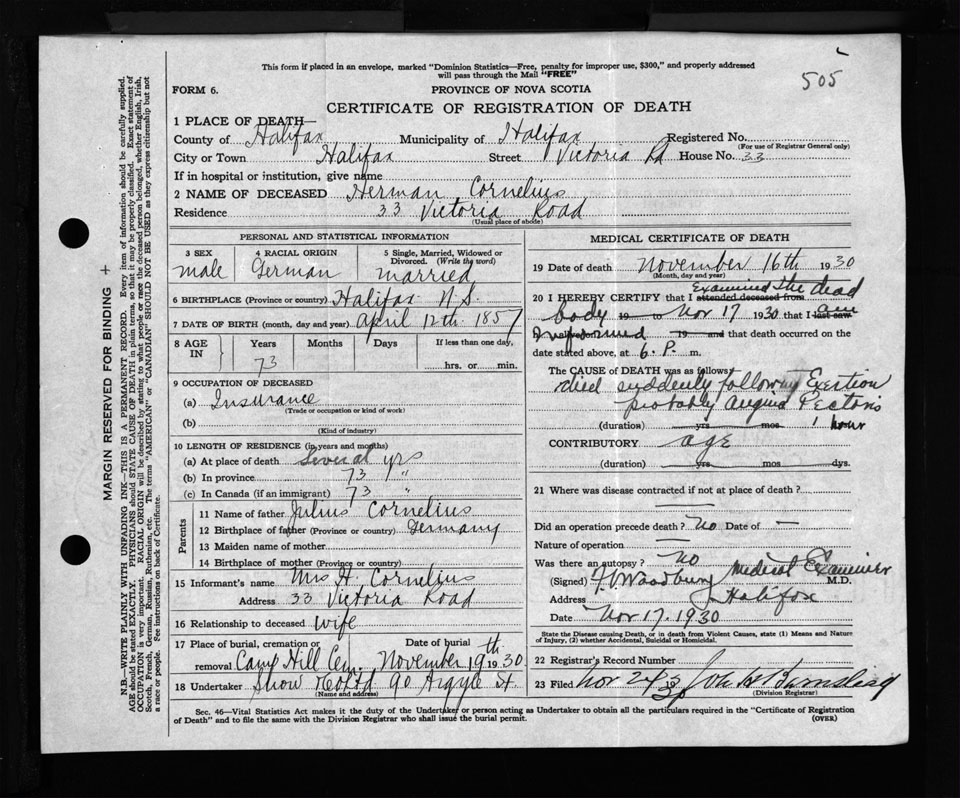 505
This form if placed in an envelope, marked "Dominion Statistics—Free, penalty for improper use, $300," and properly addressed
will pass through the Mail "FREE"
FORM 6.
PROVINCE OF NOVA SCOTIA
CERTIFICATE OF REGISTRATION OF DEATH
1 PLACE OF DEATH—
County of Halifax Municipality of Halifax Registered No.
(For use of Registrar General only)
City or Town Halifax Street Victoria Rd House No. 33
If in hospital or institution, give name
2 NAME OF DECEASED Herman Cornelius
Residence 33 Victoria Road
(Usual place of abode)
PERSONAL AND STATISTICAL INFORMATION
3 SEX male
4 RACIAL ORIGIN German
5 Single, Married, Widowed or Divorced. (Write the word) married
6 BIRTHPLACE (Province or country) Halifax N.S.
7 DATE OF BIRTH (month, day and year) April 12th. 1857
8 AGE IN Years 73 Months Days If less than one day, hrs. or min.
9 OCCUPATION OF DECEASED
(a) Insurance
(Trade or occupation or kind of work)
(b)
(Kind of industry)
10 LENGTH OF RESIDENCE (in years and months)
(a) At place of death Several yrs
(b) In province 73 "
(c) In Canada (if an immigrant) 73 "
Parents
11 Name of father Julius Cornelius
12 Birthplace of father (Province or country) Germany
13 Maiden name of mother
14 Birthplace of mother (Province or country)
15 Informant's name Mrs H. Cornelius
Address 33 Victoria Road
16 Relationship to deceased wife
17 Place of burial, cremation or removal Camp Hill Cem. Date of burial November 19th 1930
18 Undertaker Snow & Co Ltd 90 Argyle St.
(Name and address)
MEDICAL CERTIFICATE OF DEATH
19 Date of death November 16th 1930
(Month, day and year)
Examined the dead
20 I HEREBY CERTIFY that I attended deceased from
body 19 to Nov 17 1930 that I last saw am
informed 19 and that death occurred on the
date stated above, at 6. P. m.
The CAUSE of DEATH was as follows:
died suddenly following Exertion
probably Angina Pectoris
(duration) yrs mos 1 hour
CONTRIBUTORY age
(duration) yrs mos dys.
21 Where was disease contracted if not at place of death? —
Did an operation precede death? No Date of —
Nature of operation —
Was there an autopsy? No
(Signed) Woodbury Medical Examiner M.D.
Address Halifax
Date Nov 17. 1930
State the Disease causing Death, or in death from Violent Causes, state (1) Means and Nature
of Injury, (2) whether Accidental, Suicidal or Homicidal.
22 Registrar's Record Number
23 Filed Nov 24
(Division Registrar)
Sec. 46—Vital Statistics Act makes it the duty of the Undertaker or person acting as Undertaker to obtain all the particulars required in the "Certificate of Registration
of Death" and to file the same with the Division Registrar who shall issue the burial permit.
(OVER)
MARGIN RESERVED FOR BINDING +
N.B.—WRITE PLAINLY WITH UNFADING INK—THIS IS A PERMANENT RECORD. Every item of information should be carefully supplied.
AGE should be stated EXACTLY. PHYSICIANS should STATE CAUSE OF DEATH in plain terms, so that it may be properly classified. Exact statement of
OCCUPATION is very important. RACIAL ORIGIN will be described by stating to what people or race the deceased person belonged, whether English, Irish,
Scotch, French, German, Russian, Ruthenian, etc. The terms "AMERICAN" or "CANADIAN" SHOULD NOT BE USED as they express citizenship but not
a race or people. See instructions on back of Certificate.